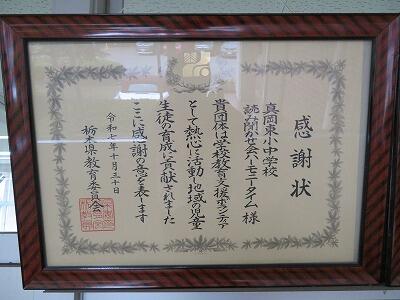 感謝状
真岡東小中学校
読み聞かせ会ハーモニータイム 様
貴団体は学校教育支援ボランティア
として熱心に活動し地域の児童
生徒の育成に貢献されました
ここに感謝の意を表します
令和七年十月三十日
栃木県教育委員会